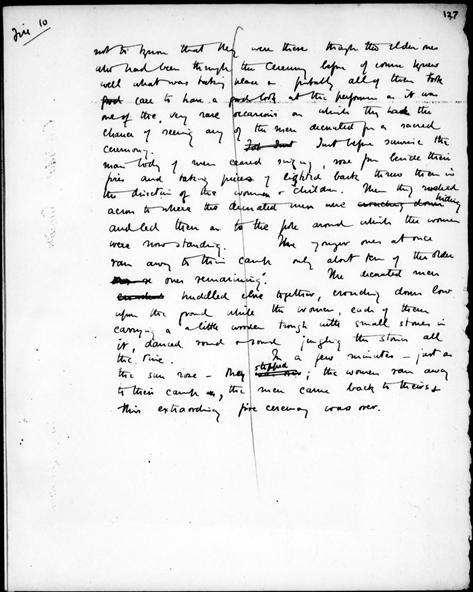 Fire 10
137
not to know that they were there though the elder ones
who had been through the ceremony before of course knew
well what was taking place & probably all of them took
good care to have a good look at the performers as it was
one of the very rare occasions on which they had the
chance of seeing any of the men decorated for a sacred
ceremony. Just before sunrise the
main body of men ceased singing, rose from beside their
fires and taking pieces of lighted bark threw them in
the direction of the women & children. Then they rushed
across to where the decorated men were crouching down hiding
and led them on to the pole around which the women
were now standing. The younger ones at once
ran away to their camp only about ten of the older
ones remaining. The decorated men
huddled close together, crouching down low
upon the ground while the women, each of them
carrying a little wooden trough with small stones in
it, danced round & round jingling the stones all
the time. In a few minutes – just as
the sun rose – they stopped; the women ran away
to their camp, the men came back to theirs &
this extraordinary fire ceremony was over.